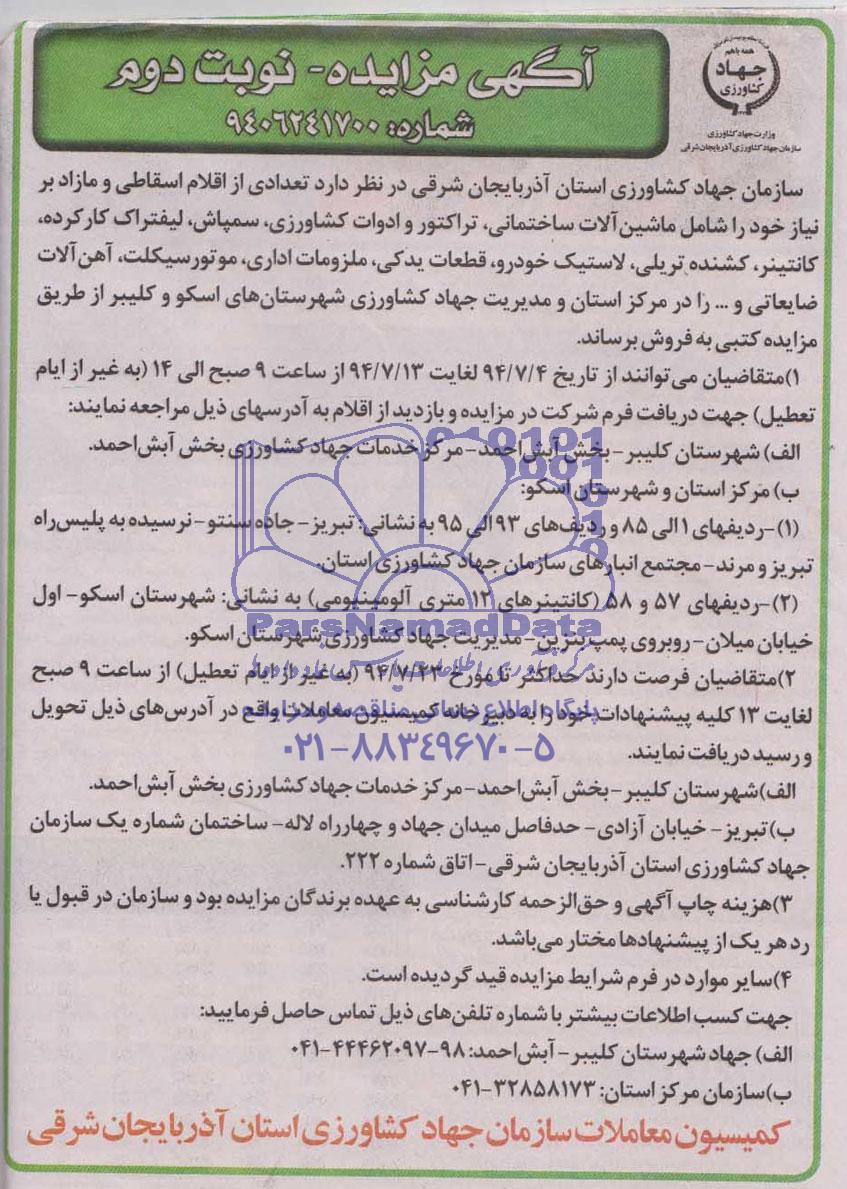 همه باهم
جهاد
کشاورزی
وزارت جهاد کشاورزی
سازمان جهاد کشاورزی آذربایجان شرقی
آگهی مزایده- نوبت دوم
شماره: ۹۴۰۶۲۴۱۷۰۰
سازمان جهاد کشاورزی استان آذربایجان شرقی در نظر دارد تعدادی از اقلام اسقاطی و مازاد بر
نیاز خود را شامل ماشین‌آلات ساختمانی، تراکتور و ادوات کشاورزی، سمپاش، لیفتراک کارکرده،
کانتینر، کشنده تریلی، لاستیک خودرو، قطعات یدکی، ملزومات اداری، موتورسیکلت، آهن‌آلات
ضایعاتی و ... را در مرکز استان و مدیریت جهاد کشاورزی شهرستان‌های اسکو و کلیبر از طریق
مزایده کتبی به فروش برساند.
۱)متقاضیان می‌توانند از تاریخ ۹۴/۷/۴ لغایت ۹۴/۷/۱۳ از ساعت ۹ صبح الی ۱۴ (به غیر از ایام
تعطیل) جهت دریافت فرم شرکت در مزایده و بازدید از اقلام به آدرسهای ذیل مراجعه نمایند:
الف) شهرستان کلیبر – بخش آبش‌احمد- مرکز خدمات جهاد کشاورزی بخش آبش‌احمد.
ب) مرکز استان و شهرستان اسکو:
(۱)-ردیفهای ۱ الی ۸۵ و ردیف‌های ۹۳ الی ۹۵ به نشانی: تبریز- جاده سنتو- نرسیده به پلیس‌راه
تبریز و مرند- مجتمع انبارهای سازمان جهاد کشاورزی استان.
(۲)-ردیفهای ۵۷ و ۵۸ (کانتینرهای ۱۲ متری آلومینیومی) به نشانی: شهرستان اسکو- اول
خیابان میلان- روبروی پمپ بنزین- مدیریت جهاد کشاورزی شهرستان اسکو.
ParsNamadData
۲)متقاضیان فرصت دارند حداکثر تا مورخ ۹۴/۷/۲۳ (به غیر از ایام تعطیل) از ساعت ۹ صبح
لغایت ۱۳ کلیه پیشنهادات خود را به دبیرخانه کمیسیون معاملات واقع در آدرس‌های ذیل تحویل
و رسید دریافت نمایند.
۰۲۱-۸۸۳۴۹۶۷۰-۵
الف)شهرستان کلیبر- بخش آبش‌احمد- مرکز خدمات جهاد کشاورزی بخش آبش‌احمد.
ب)تبریز- خیابان آزادی- حدفاصل میدان جهاد و چهارراه لاله- ساختمان شماره یک سازمان
جهاد کشاورزی استان آذربایجان شرقی- اتاق شماره ۲۲۲.
۳)هزینه چاپ آگهی و حق‌الزحمه کارشناسی به عهده برندگان مزایده بود و سازمان در قبول یا
رد هر یک از پیشنهادها مختار می‌باشد.
۴)سایر موارد در فرم شرایط مزایده قید گردیده است.
جهت کسب اطلاعات بیشتر با شماره تلفن‌های ذیل تماس حاصل فرمایید:
الف) جهاد شهرستان کلیبر- آبش‌احمد: ۹۸-۰۴۱-۴۴۴۶۲۰۹۷
ب)سازمان مرکز استان: ۰۴۱-۳۲۸۵۸۱۷۳
کمیسیون معاملات سازمان جهاد کشاورزی استان آذربایجان شرقی